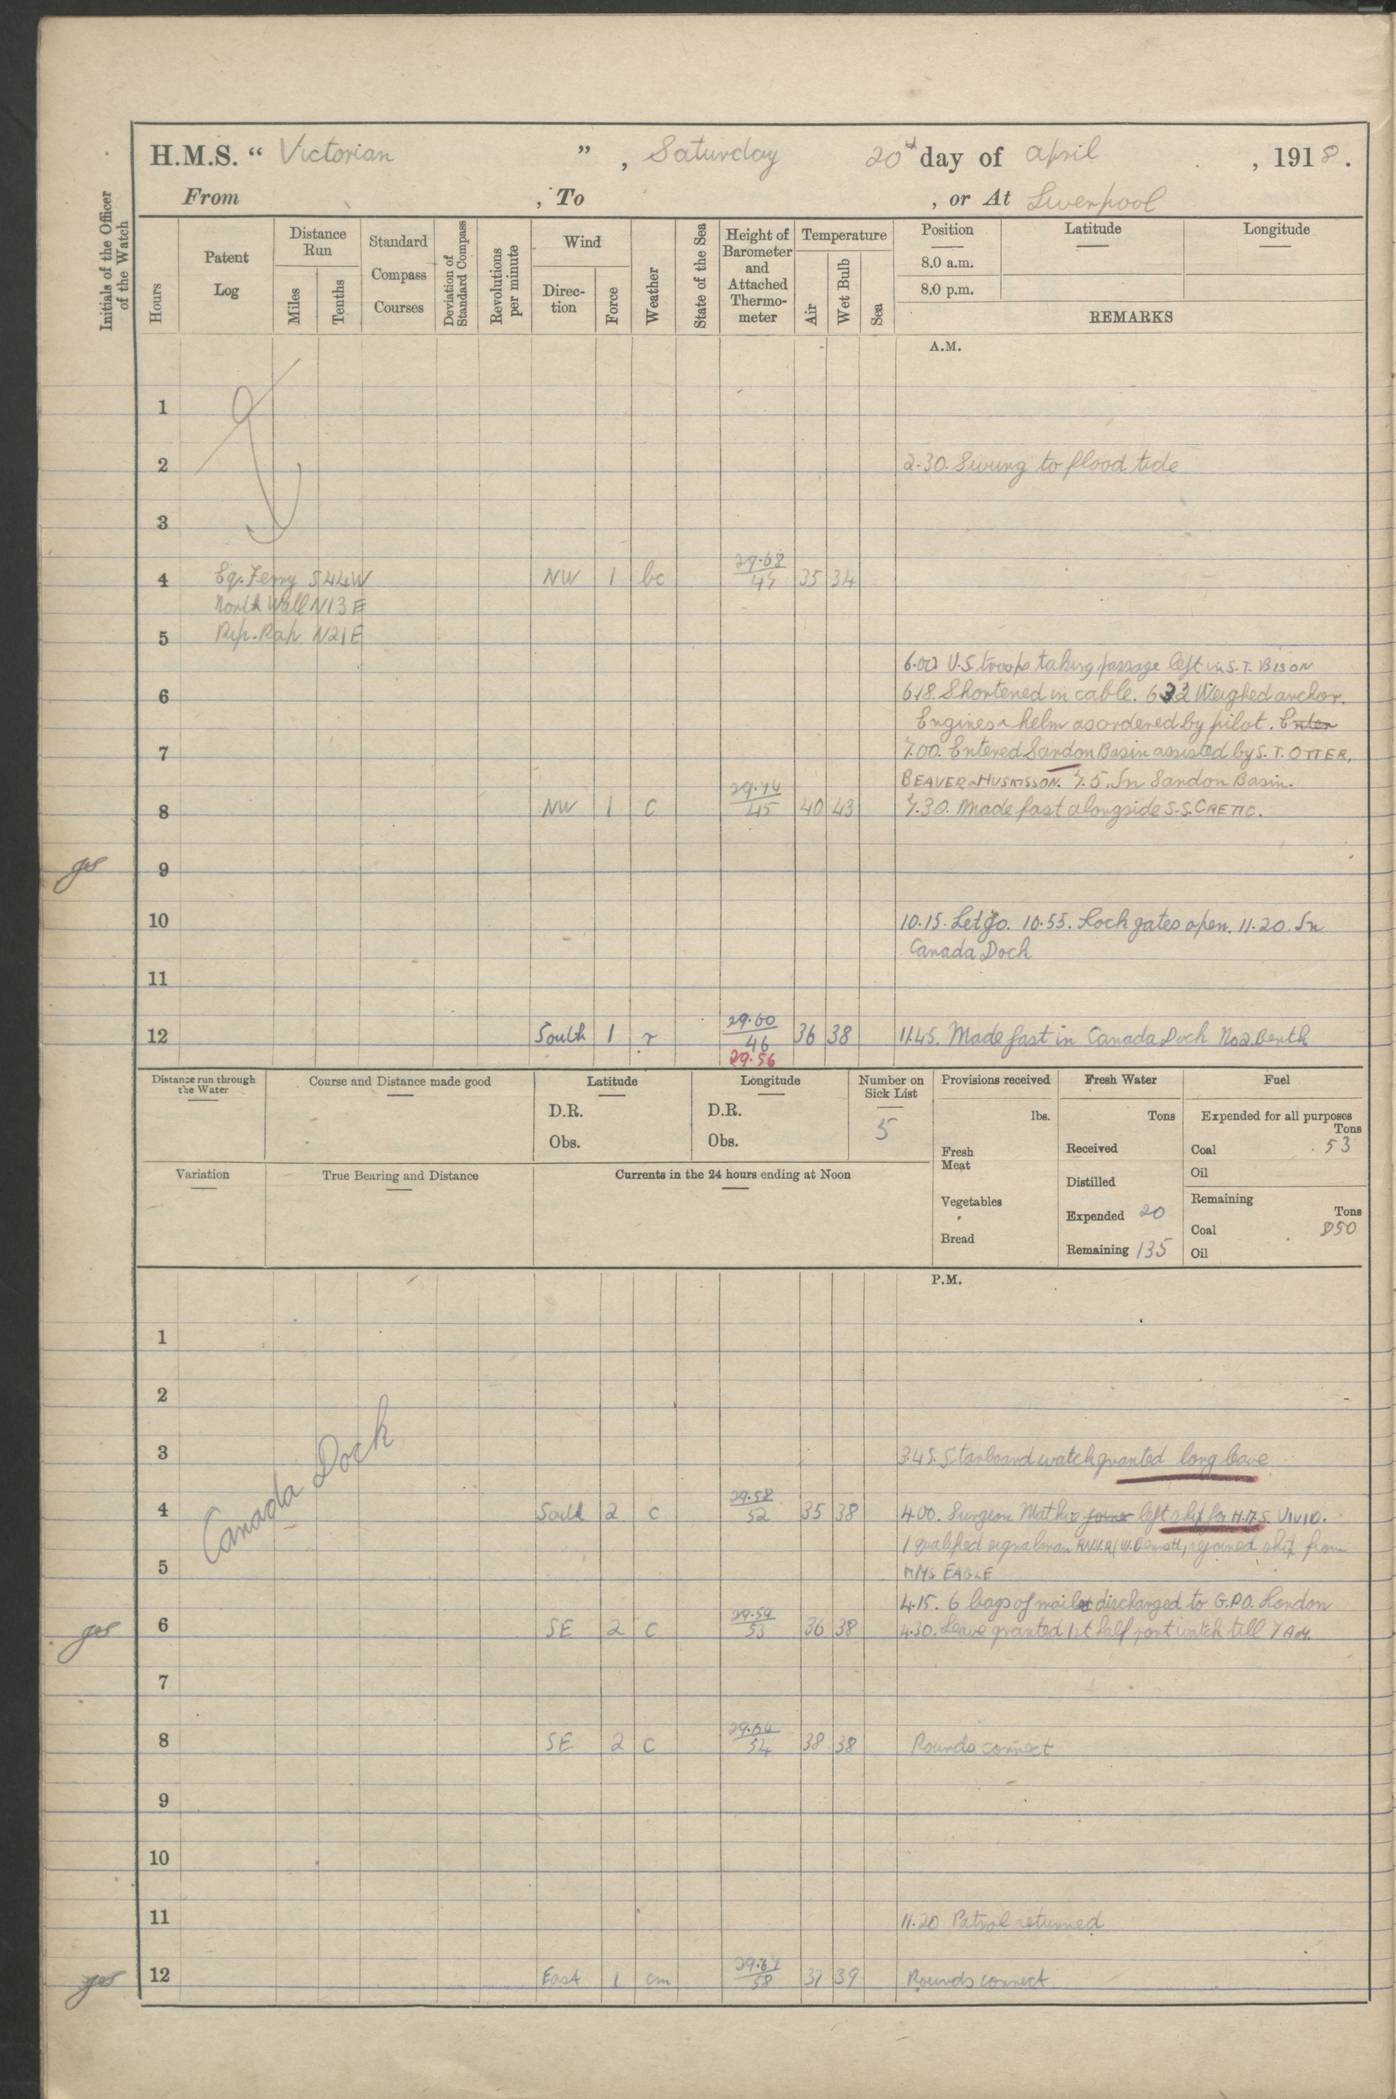 H.M.S. “ Victorian ” , Saturday 20th day of April , 1918.
From , To , or At Liverpool
Initials of the Officer of the Watch
Hours
Patent Log
Distance Run
Miles
Tenths
Standard Compass Courses
Deviation of Standard Compass
Revolutions per minute
Wind
Direc-tion
Force
Weather
State of the Sea
Height of Barometer and Attached Thermo-meter
Temperature
Air
Wet Bulb
Sea
Position
Latitude
Longitude
8.0 a.m.
8.0 p.m.
REMARKS
A.M.
1
2 2.30. Swung to flood tide
3
4 Eg. Ferry S44W NW 1 bc 29.68 35 34
North Wall N13E
5 Rip-Rap N21E
6.00 U.S troops taking passage left via S.T. BISON
6 6.18. Shortened in cable. 6 32 Weighed anchor.
Engines & helm as ordered by pilot. Enter
7 7.00. Entered Sandon Basin assisted by S.T. OTTER,
BEAVER & HUSKISSON. 7.5. In Sandon Basin.
8 NW 1 c 29.74 45 40 43 7.30. Made fast alongside S.S. CRETIC.
9
10 10.15. Let go. 10.55. Lock gates open. 11.20. In
Canada Dock
11
12 South 1 r 29.60 46 36 38 11.45. Made fast in Canada Dock No 2. Berth
29.56
Distance run through the Water
Course and Distance made good
Latitude
D.R.
Obs.
Longitude
D.R.
Obs.
Number on Sick List
5
Provisions received
lbs.
Fresh Meat
Vegetables
Bread
Fresh Water
Tons
Received
Distilled
Expended 20
Remaining 135
Fuel
Expended for all purposes
Tons
Coal 53
Oil
Remaining
Tons
Coal 950
Oil
Variation
True Bearing and Distance
Currents in the 24 hours ending at Noon
P.M.
1
2
Canada Dock
3 3.45. Starboard watch granted long leave
4 South 2 c 29.58 52 35 38 4.00. Surgeon joiner left ship for H.M.S. VIVID.
1 qualified signalman rejoined ship from
5 HMS EAGLE
4.15. 6 bags of mail discharged to G.P.O. London
6 SE 2 c 29.59 53 36 38 4.30. Leave granted 1st half port watch till 7 AM.
7
8 SE 2 c 29.64 54 38 38 Rounds correct
9
10
11 11.20 Patrol returned
12 East 1 cm 29.67 58 37 39 Rounds correct